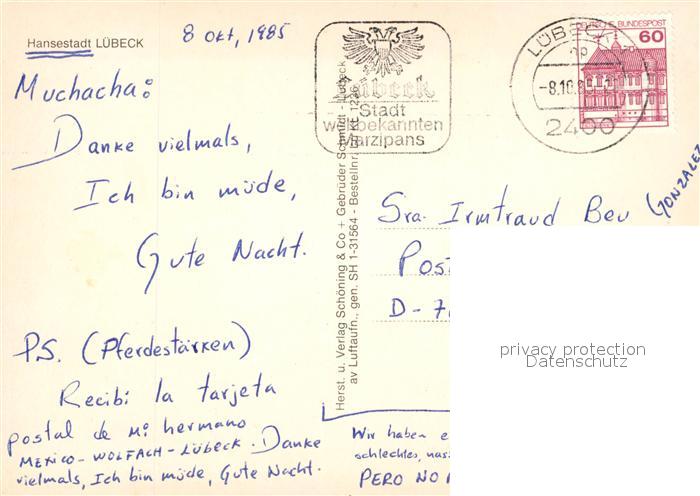 Hansestadt LÜBECK
8 Okt, 1985
Muchacha:
Danke vielmals,
Ich bin müde,
Gute Nacht.
P.S. (Pferdestärken)
Recibi la tarjeta
postal de Mi hermano
MEXICO-WOLFACH-LÜBECK. Danke
vielmals, Ich bin müde, Gute Nacht.
Lübeck
Stadt
weltbekannten
Marzipans
Herst. u. Verlag Schöning & Co + Gebrüder Schmidt - Lübeck
av Luftaufn., gen. SH 1-31564 - Bestellnr.
LÜBECK
-8.10.85
2400
DEUTSCHE BUNDESPOST
60
Sra. Irmtraud Beu GONZALEZ
Post
D-7
Wir haben e
schlechtes, nas
PERO NO
privacy protection
Datenschutz